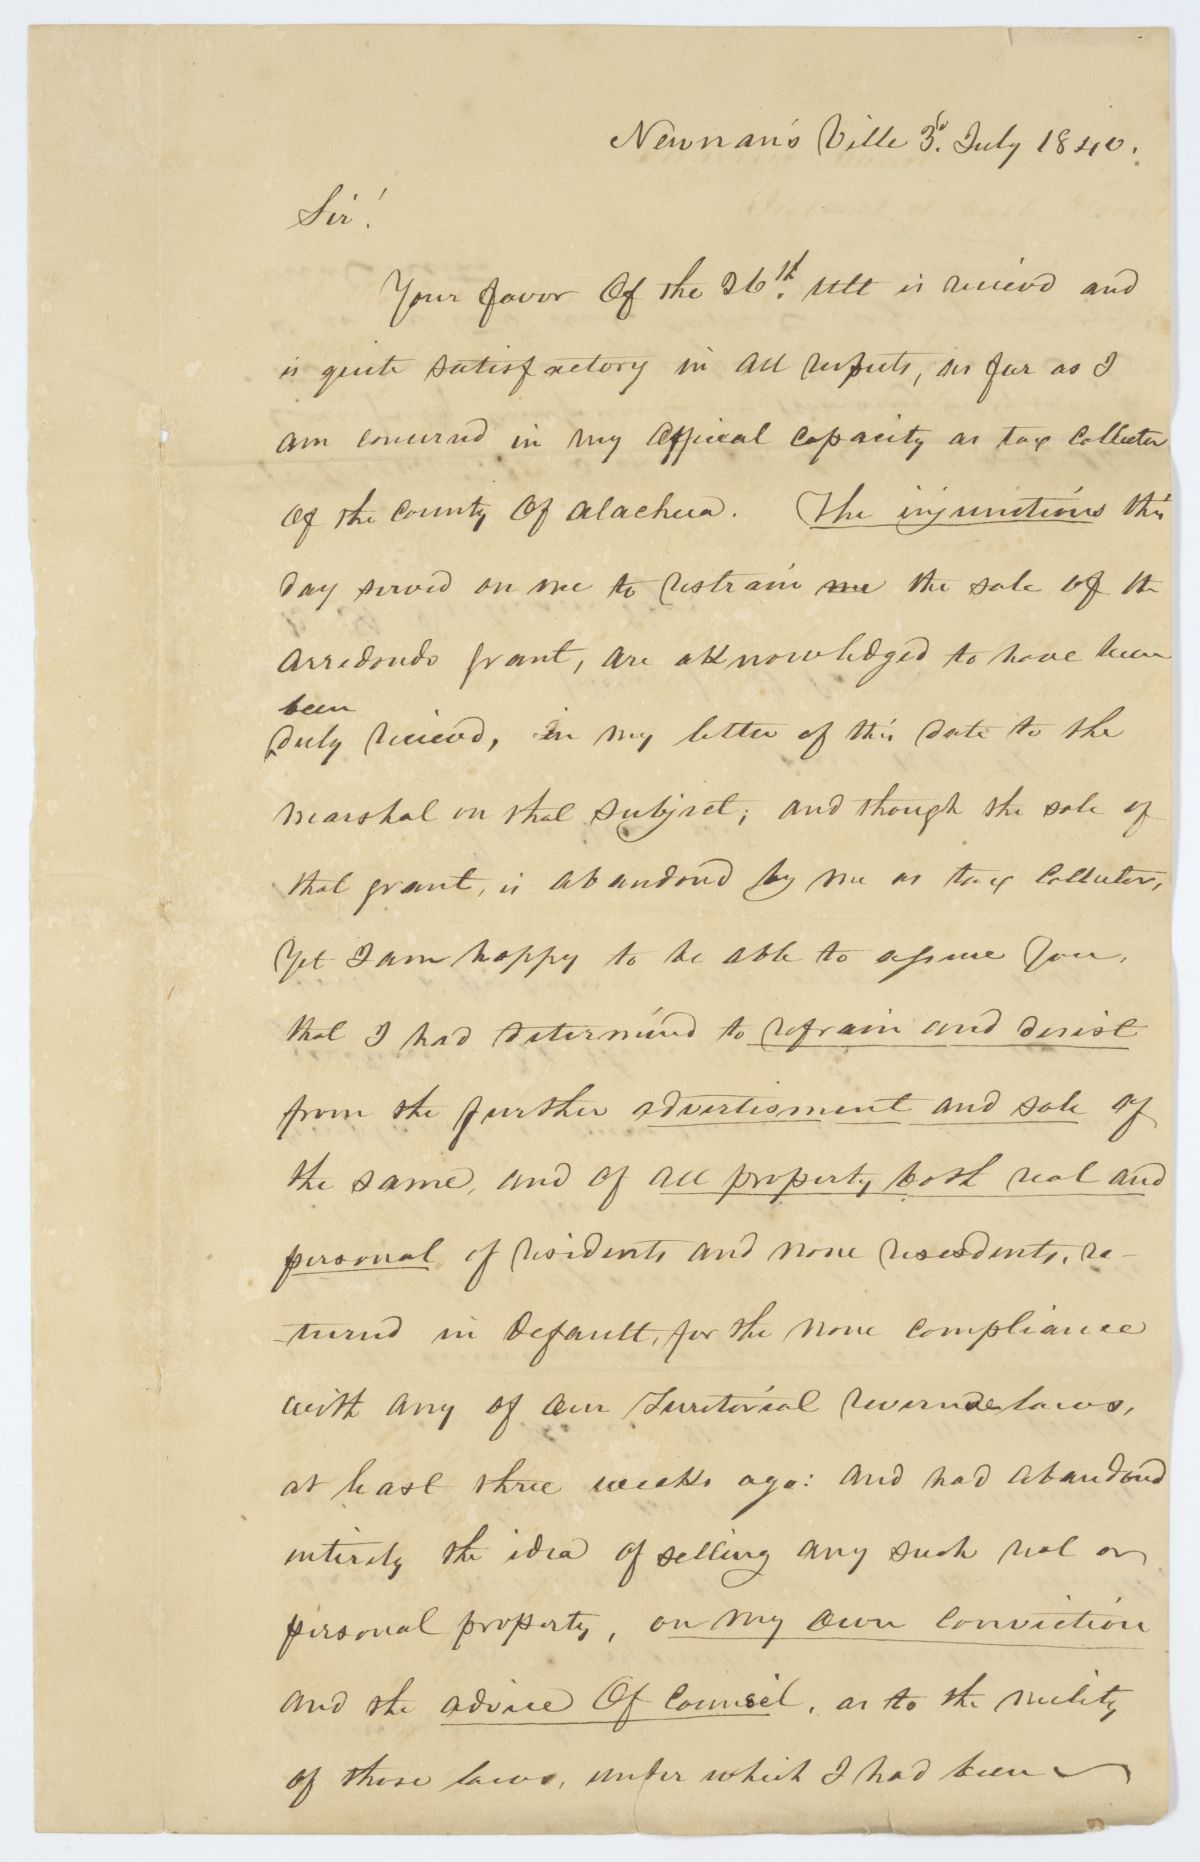 Newnan's Ville 3d. July 1840.
Sir!
Your favor Of the 26th. Ult is recievd and
is quite satisfactory in all respects, as far as I
am concernd in my Official capacity as tax Collector
Of the County Of Alachua. The injunctions this
day served on me to restrain me the sale of the
Arredondo grant, are acknowledged to have been
been
duly recievd, in my letter of this date to the
Marshal on that subject; and though the sale of
that grant, is abandond by me as tax Collector,
Yet I am happy to be able to assure you,
that I had determind to refrain and desist
from the further advertisment and sale of
the same, and of all property both real and
personal, of residents and none residents, re-
-turnd in Default, for the none compliance
with any of Our Territorial revenue laws,
at least three weeks ago: and had abandond
entirely the idea of selling any such real or
personal property, on my own conviction
and the advice Of Counsel, as to the nulity
of those laws, under which I had been